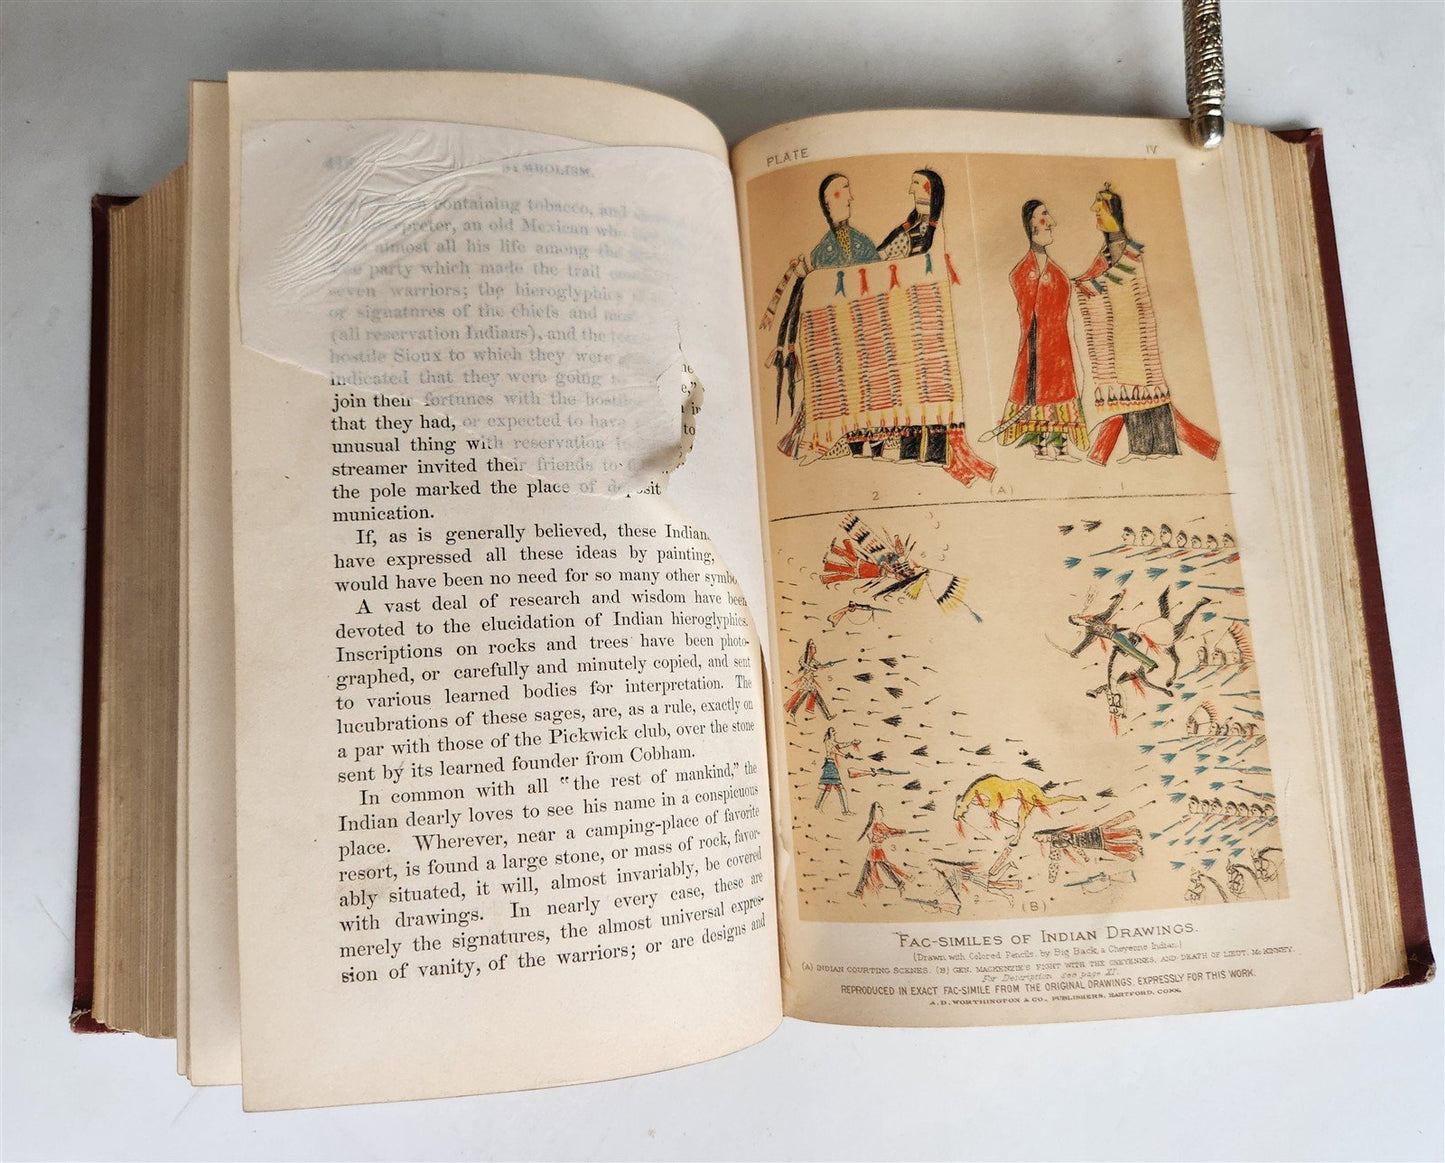 SYMBOLISM.
containing tobacco, and
an old Mexican who
almost all his life among the
party which made the trail
seven warriors; the hieroglyphics
or signatures of the chiefs and
(all reservation Indians), and the
hostile Sioux to which they were
indicated that they were going
join their fortunes with the
that they had, or expected to have
unusual thing with reservation
streamer invited their friends to
the pole marked the place of deposit
munication.
If, as is generally believed, these
have expressed all these ideas by painting,
would have been no need for so many other
A vast deal of research and wisdom have been
devoted to the elucidation of Indian hieroglyphics.
Inscriptions on rocks and trees have been photo-
graphed, or carefully and minutely copied, and sent
to various learned bodies for interpretation. The
lucubrations of these sages, are, as a rule, exactly on
a par with those of the Pickwick club, over the stone
sent by its learned founder from Cobham.
In common with all "the rest of mankind," the
Indian dearly loves to see his name in a conspicuous
place. Wherever, near a camping-place of favorite
resort, is found a large stone, or mass of rock, favor-
ably situated, it will, almost invariably, be covered
with drawings. In nearly every case, these are
merely the signatures, the almost universal expres-
sion of vanity, of the warriors; or are designs and
PLATE IV
2 (A) 1
6
5
3
2
(B)
FAC-SIMILES OF INDIAN DRAWINGS.
(Drawn with Colored Pencils, by Big Back, a Cheyenne Indian.)
(A) INDIAN COURTING SCENES. (B) GEN. MACKENZIE'S FIGHT WITH THE CHEYENNES, AND DEATH OF LIEUT. McKINNEY.
For Description see page XI.
REPRODUCED IN EXACT FAC-SIMILE FROM THE ORIGINAL DRAWINGS, EXPRESSLY FOR THIS WORK.
A. D. WORTHINGTON & CO., PUBLISHERS, HARTFORD, CONN.